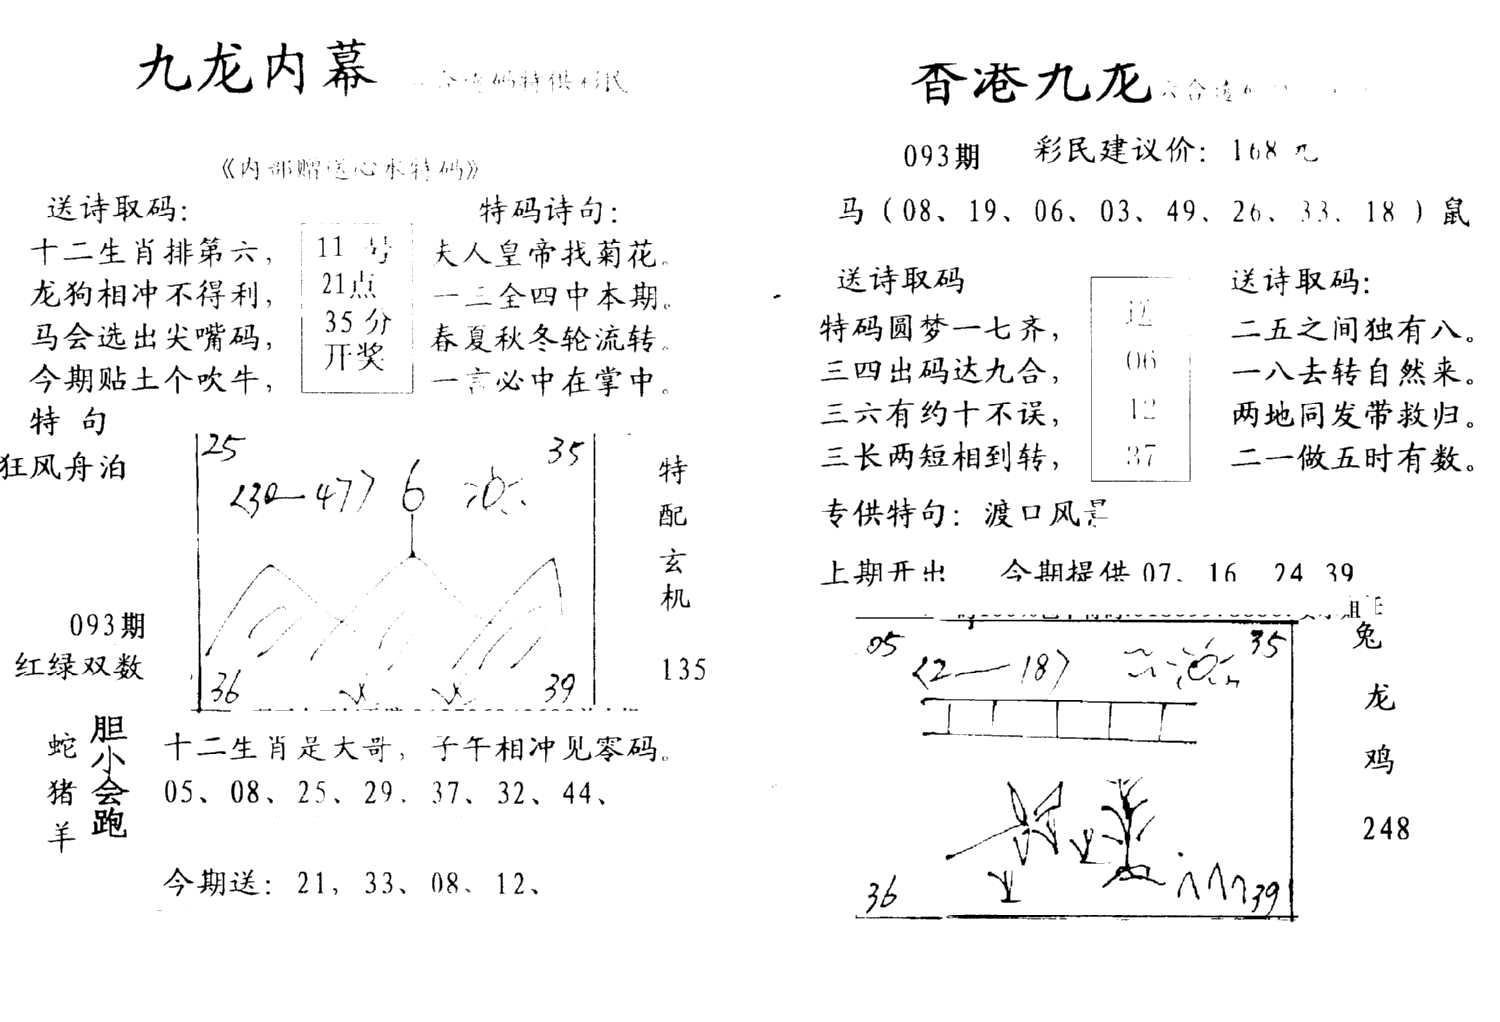 九龙内幕
合 码特供彩民
《内部赠送心水特码》
送诗取码：
十二生肖排第六，
龙狗相冲不得利，
马会选出尖嘴码，
今期贴土个吹牛，
11 号
21点
35 分
开奖
特码诗句：
夫人皇帝找菊花。
一三全四中本期。
春夏秋冬轮流转。
一言必中在掌中。
特 句
狂风舟泊
25
35
(30—47)
6
36
39
特
配
玄
机
135
093期
红绿双数
蛇
猪
羊
胆小会跑
十二生肖是大哥，子午相冲见零码。
05、08、25、29、37、32、44、
今期送：21，33、08、12、
香港九龙
六合
093期 彩民建议价：168 元
马（08、19、06、03、49、26、33、18）鼠
送诗取码
特码圆梦一七齐，
三四出码达九合，
三六有约十不误，
三长两短相到转，
送
06
12
37
送诗取码：
二五之间独有八。
一八去转自然来。
两地同发带救归。
二一做五时有数。
专供特句：渡口风景
上期开出 今期提供 07、16 24 39
05
35
(2—18)
36
39
兔
龙
鸡
248